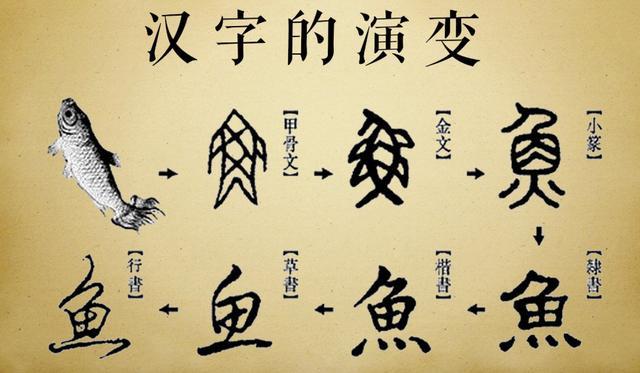 汉字的演变
【甲骨文】
【金文】
【小篆】
【行書】
【草書】
【楷書】
【隸書】
魚
魚
魚
魚